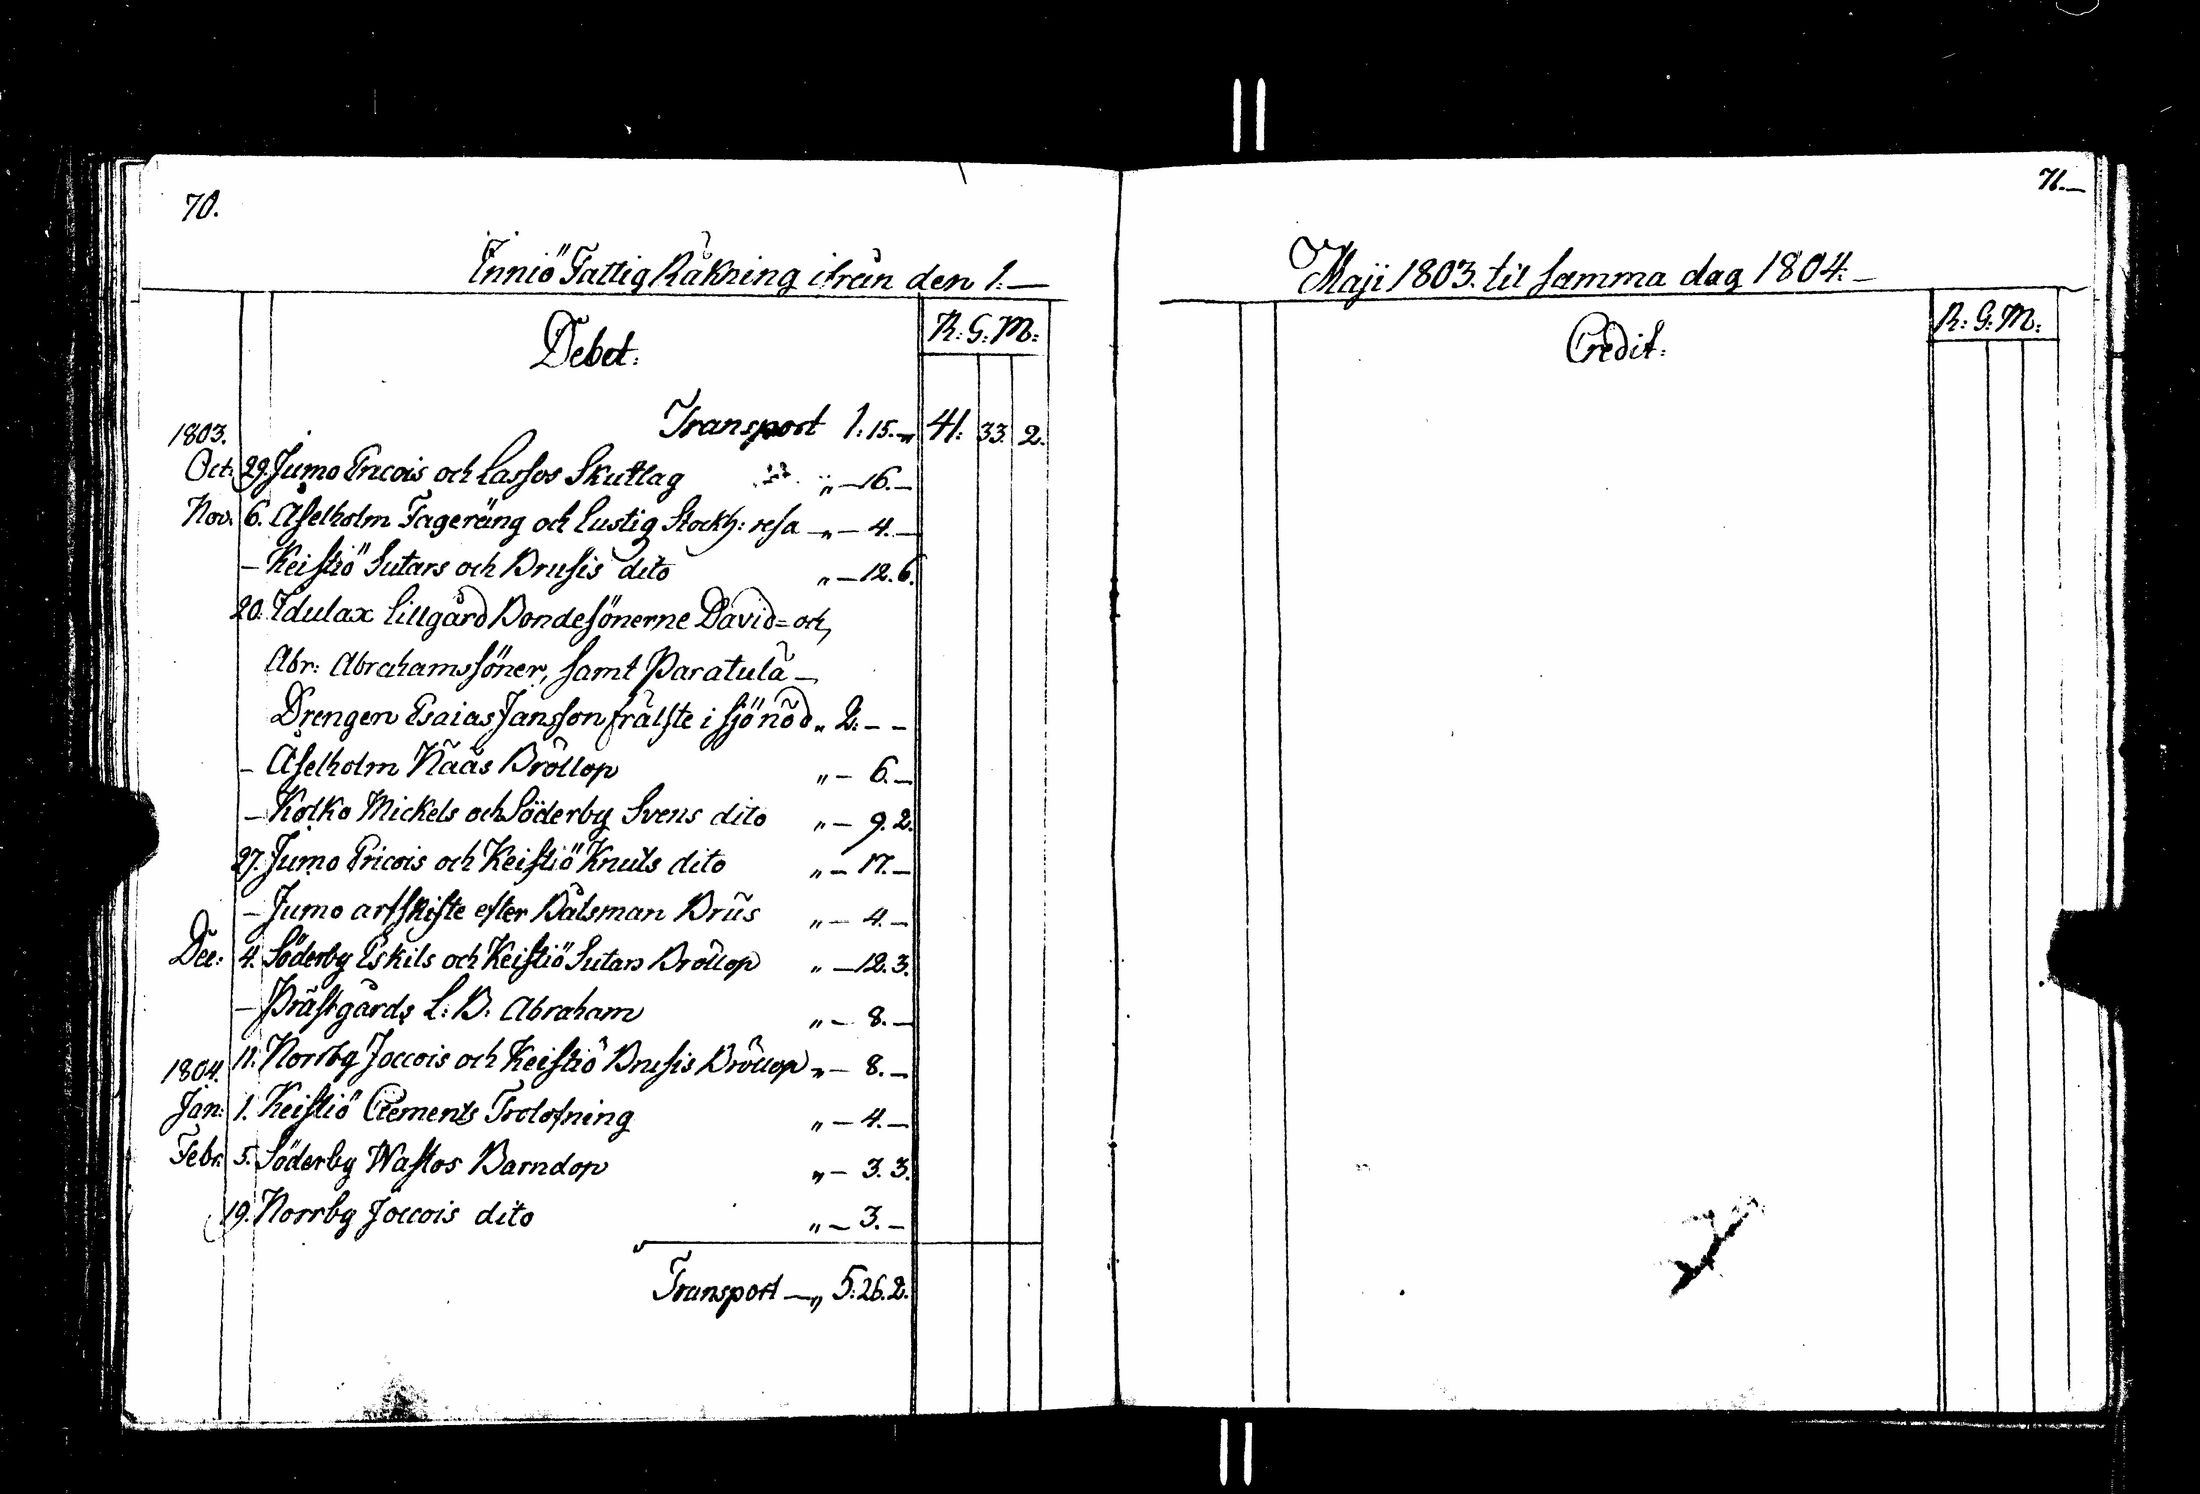 70.
Inniö Fattig Räkning ifrån den 1.—
Debet:
R: G: M:
1803. Transport 1: 15. „ 41: 33. 2.
Oct: 29. Jumo Ericois och Lassos Skutlag „ — 16. —
Nov. 6. Åselholm Fageräng och Lustig Stockh: resa — „ — 4. —
— Keistiö Sutars och Brusis dito „ — 12. 6.
20. Idulax Lillgård Bondesönerne David = och
Abr: Abrahamssöner, samt Paratula —
Drengen Esaias Jansson frälste i sjönöd „ 2: — —
— Åselholm Nääs Bröllop „ — 6. —
— Kolko Mickels och Söderby Svens dito „ — 9. 2.
27. Jumo Ericois och Keistiö Knuts dito „ — 17. —
— Jumo arfskifte efter Båtsman Brus „ — 4. —
Dec: 4. Söderby Eskils och Keistiö Sutars Bröllop „ — 12. 3.
— Prästgårds L: B: Abraham „ — 8. —
11. Norrby Joccois och Keistiö Brusis Bröllop „ — 8. —
1804.
Jan: 1. Keistiö Clements Trolofning „ — 4. —
Febr. 5. Söderby Wastos Barndop „ — 3. 3.
19. Norrby Joccois dito „ — 3. —
Transport — „ 5: 26. 2.
71.—
Maji 1803. til samma dag 1804. —
Credit:
R: G: M: